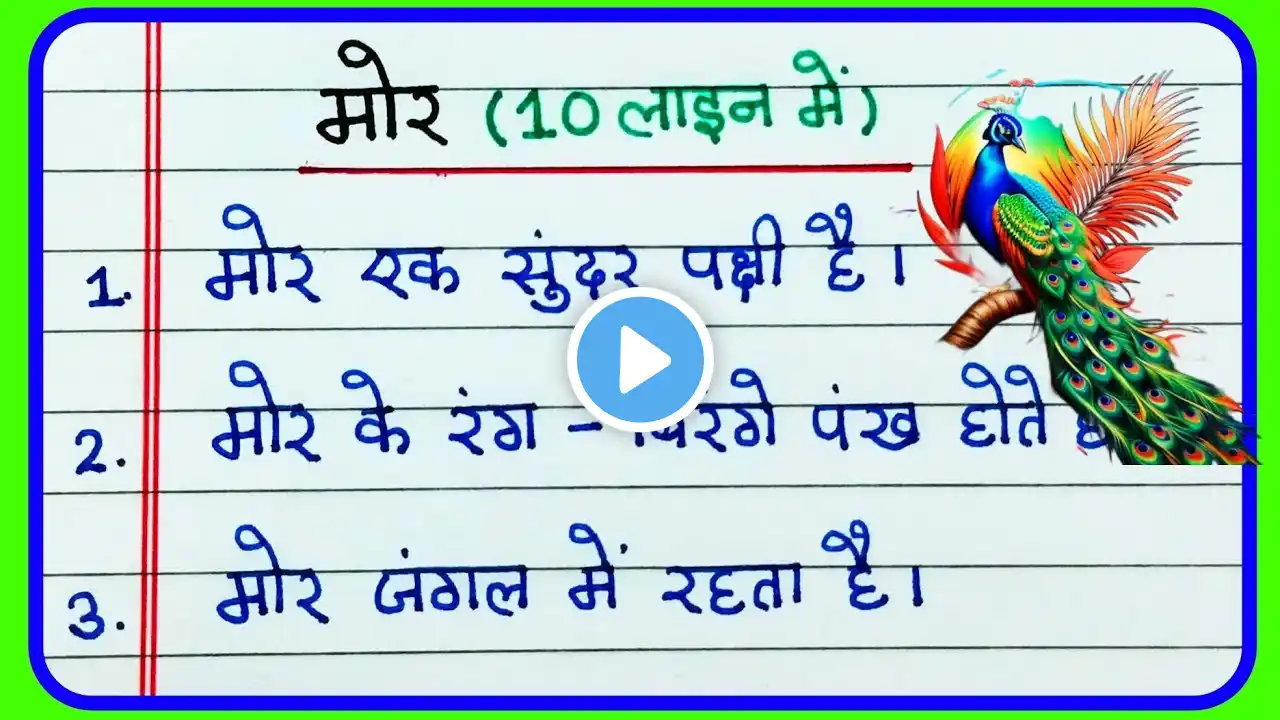 मोर (10 लाइन में)
1. मोर एक सुंदर पक्षी है।
2. मोर के रंग - बिरंगे पंख होते
3. मोर जंगल में रहता है।